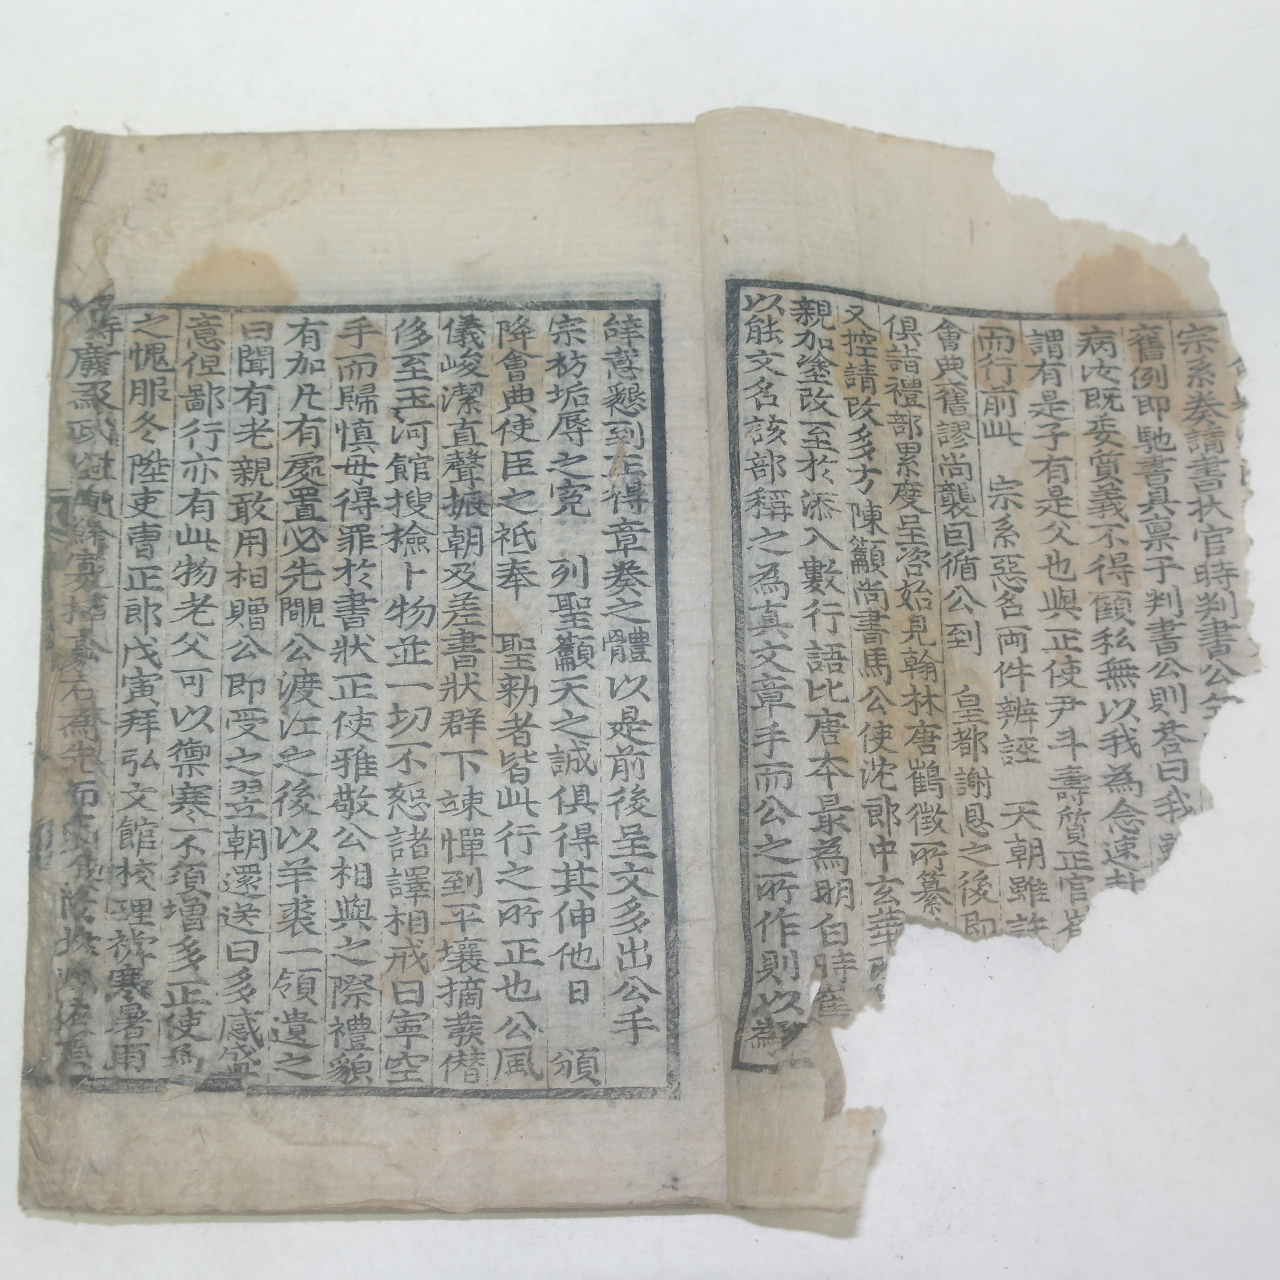 宗系奏請書狀官時判書公年
舊例即馳書具稟于判書公則答曰我雖
病汝旣委質義不得顧私無以我為念速赴
謂有是子有是父也與正使尹斗壽質正官崔
而行前此 宗系惡名兩件辨誣 天朝雖許
會典舊謬尚襲因循公到 皇都謝恩之後即
俱詣禮部累度呈咨始見翰林唐鶴徵所纂
又控請改多方陳籲尚書馬公使沈郎中玄華
親加塗改至於添入數行語比唐本最為明白時崔
以能文名該部稱之為真文章手而公之所作則以為
辭意懇到正得章奏之體以是前後呈文多出公手
宗枋垢辱之寃 列聖籲天之誠俱得其伸他日 頒
降會典使臣之祗奉 聖勅者皆此行之所正也公風
儀峻潔直聲振朝及差書狀群下竦憚到平壤摘發僭
侈至玉河館搜撿卜物並一切不恕諸譯相戒曰寧空
手而歸慎毋得罪於書狀正使雅敬公相與之際禮貌
有加凡有處置必先覵公渡江之後以羊裘一領遺之
曰聞有老親敢用相贈公即受之翌朝還送曰多感盛
意但鄙行亦有此物老父可以禦寒不須增多正使為
之愧服冬陞吏曹正郎戊寅拜弘文館校理辭寒暑雨